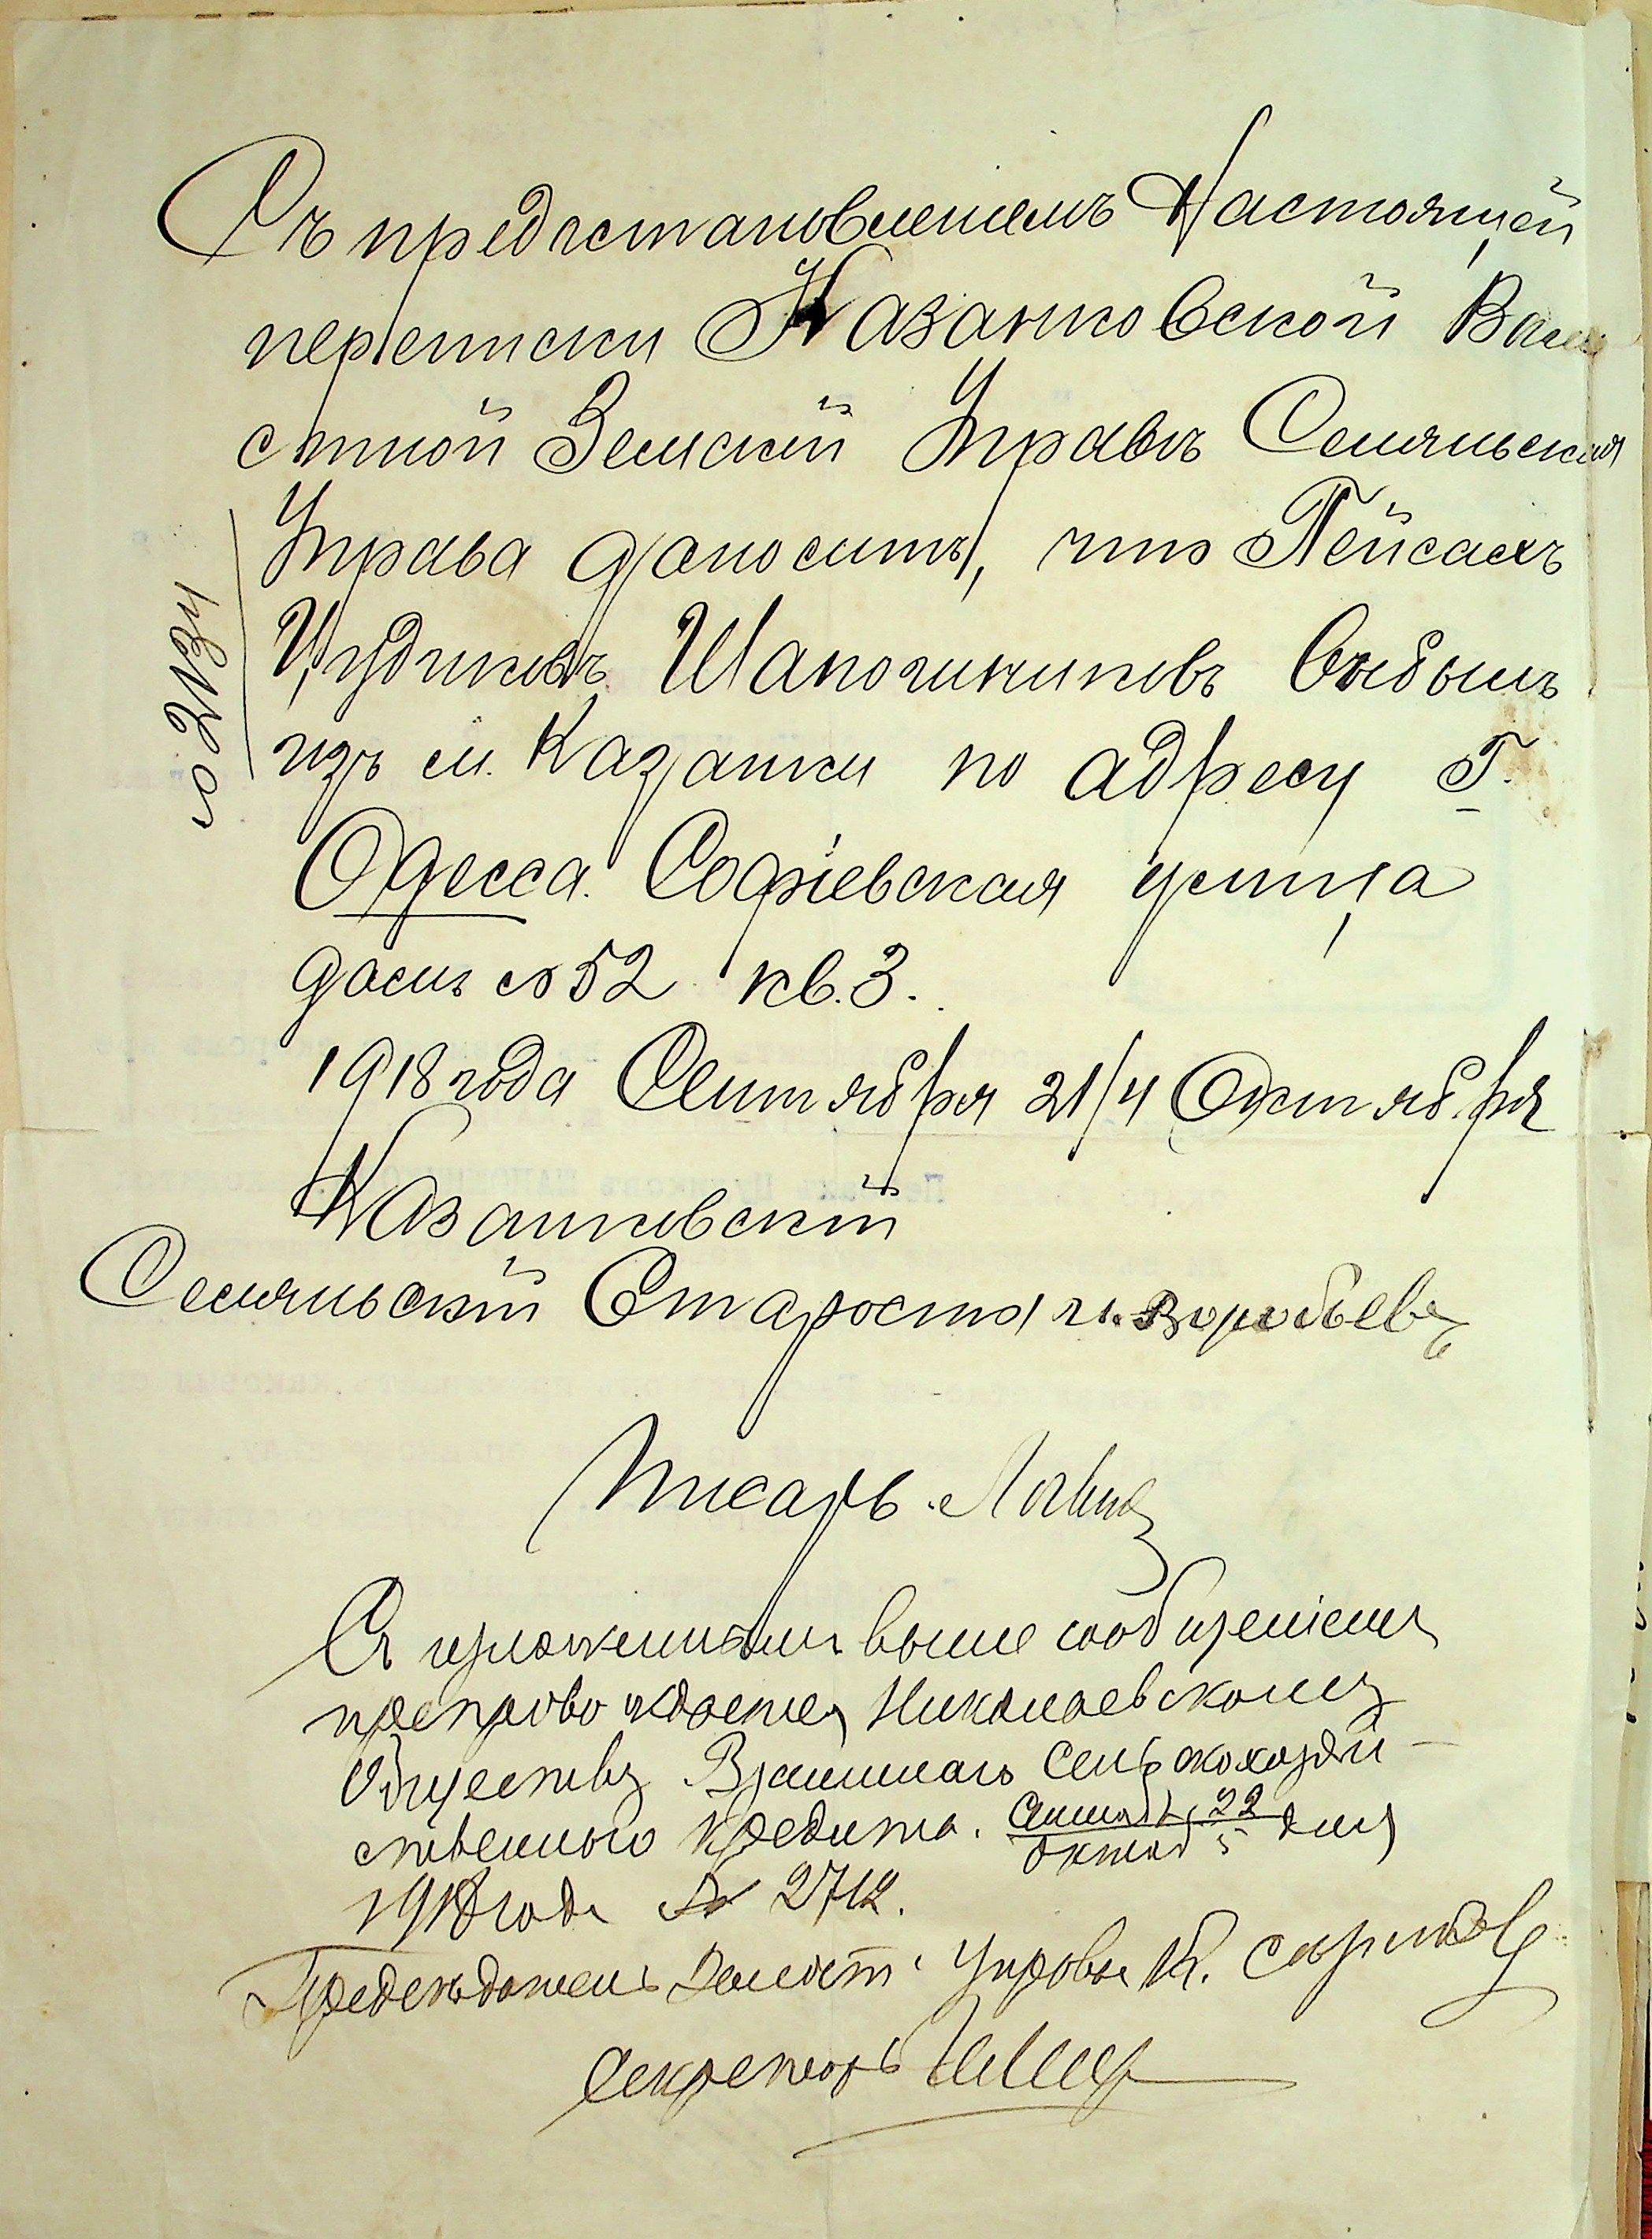 Съ предоставленіемъ Настоящей
переписки Казанковской Воло
стной Земскій Управѣ Сельская
Управа доноситъ, что Пейсахъ
Цудиковъ Шапочниковъ выбылъ
изъ м. Казанки по адресу Г.
Одесса. Софіевская улица
домъ № 52 кв. 3.
1918 года Сентября 21/4 Октября
Казанковскій
Сельскій Староста Воробьевъ
Писарь
Съ изложеннымъ выше сообщеніемъ
препровождается Николаевскому
Обществу Взаимнаго Сельскохозяй-
ственнаго Кредита. Сентяб. 22
Октяб 5 дня
1918 года № 2712.
Председатель Волост. Управы К.
Секретарь
№ 243